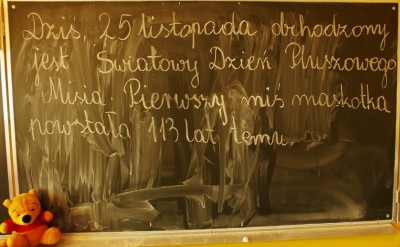 Dziś, 25 listopada obchodzony
jest Światowy Dzień Pluszowego
Misia. Pierwszy miś maskotka
powstała 113 lat temu